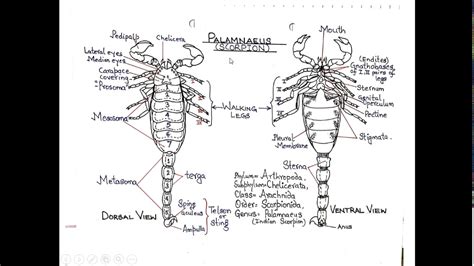 PALAMNAEUS
(SCORPION)
Pedipalp
Chelicera
Lateral eyes
Median eyes
Carapace
covering
Prosoma
Mesosoma
Metasoma
terga
Spine
aculeus
Ampulla
Telson
or
sting
DORSAL VIEW
WALKING
LEGS
I
II
III
IV
1
2
3
4
5
6
7
1
2
3
4
5
Mouth
(Endites)
Gnathobases
of I, II pairs of
legs
Sternum
Genital
Operculum
Pectine
Stigmata
Pleural
Membrane
Sterna
Anus
VENTRAL VIEW
Phylum= Arthropoda,
Subphylum= Chelicerata,
Class= Arachnida
Order= Scorpionida,
Genus= Palamnaeus
(Indian Scorpion)